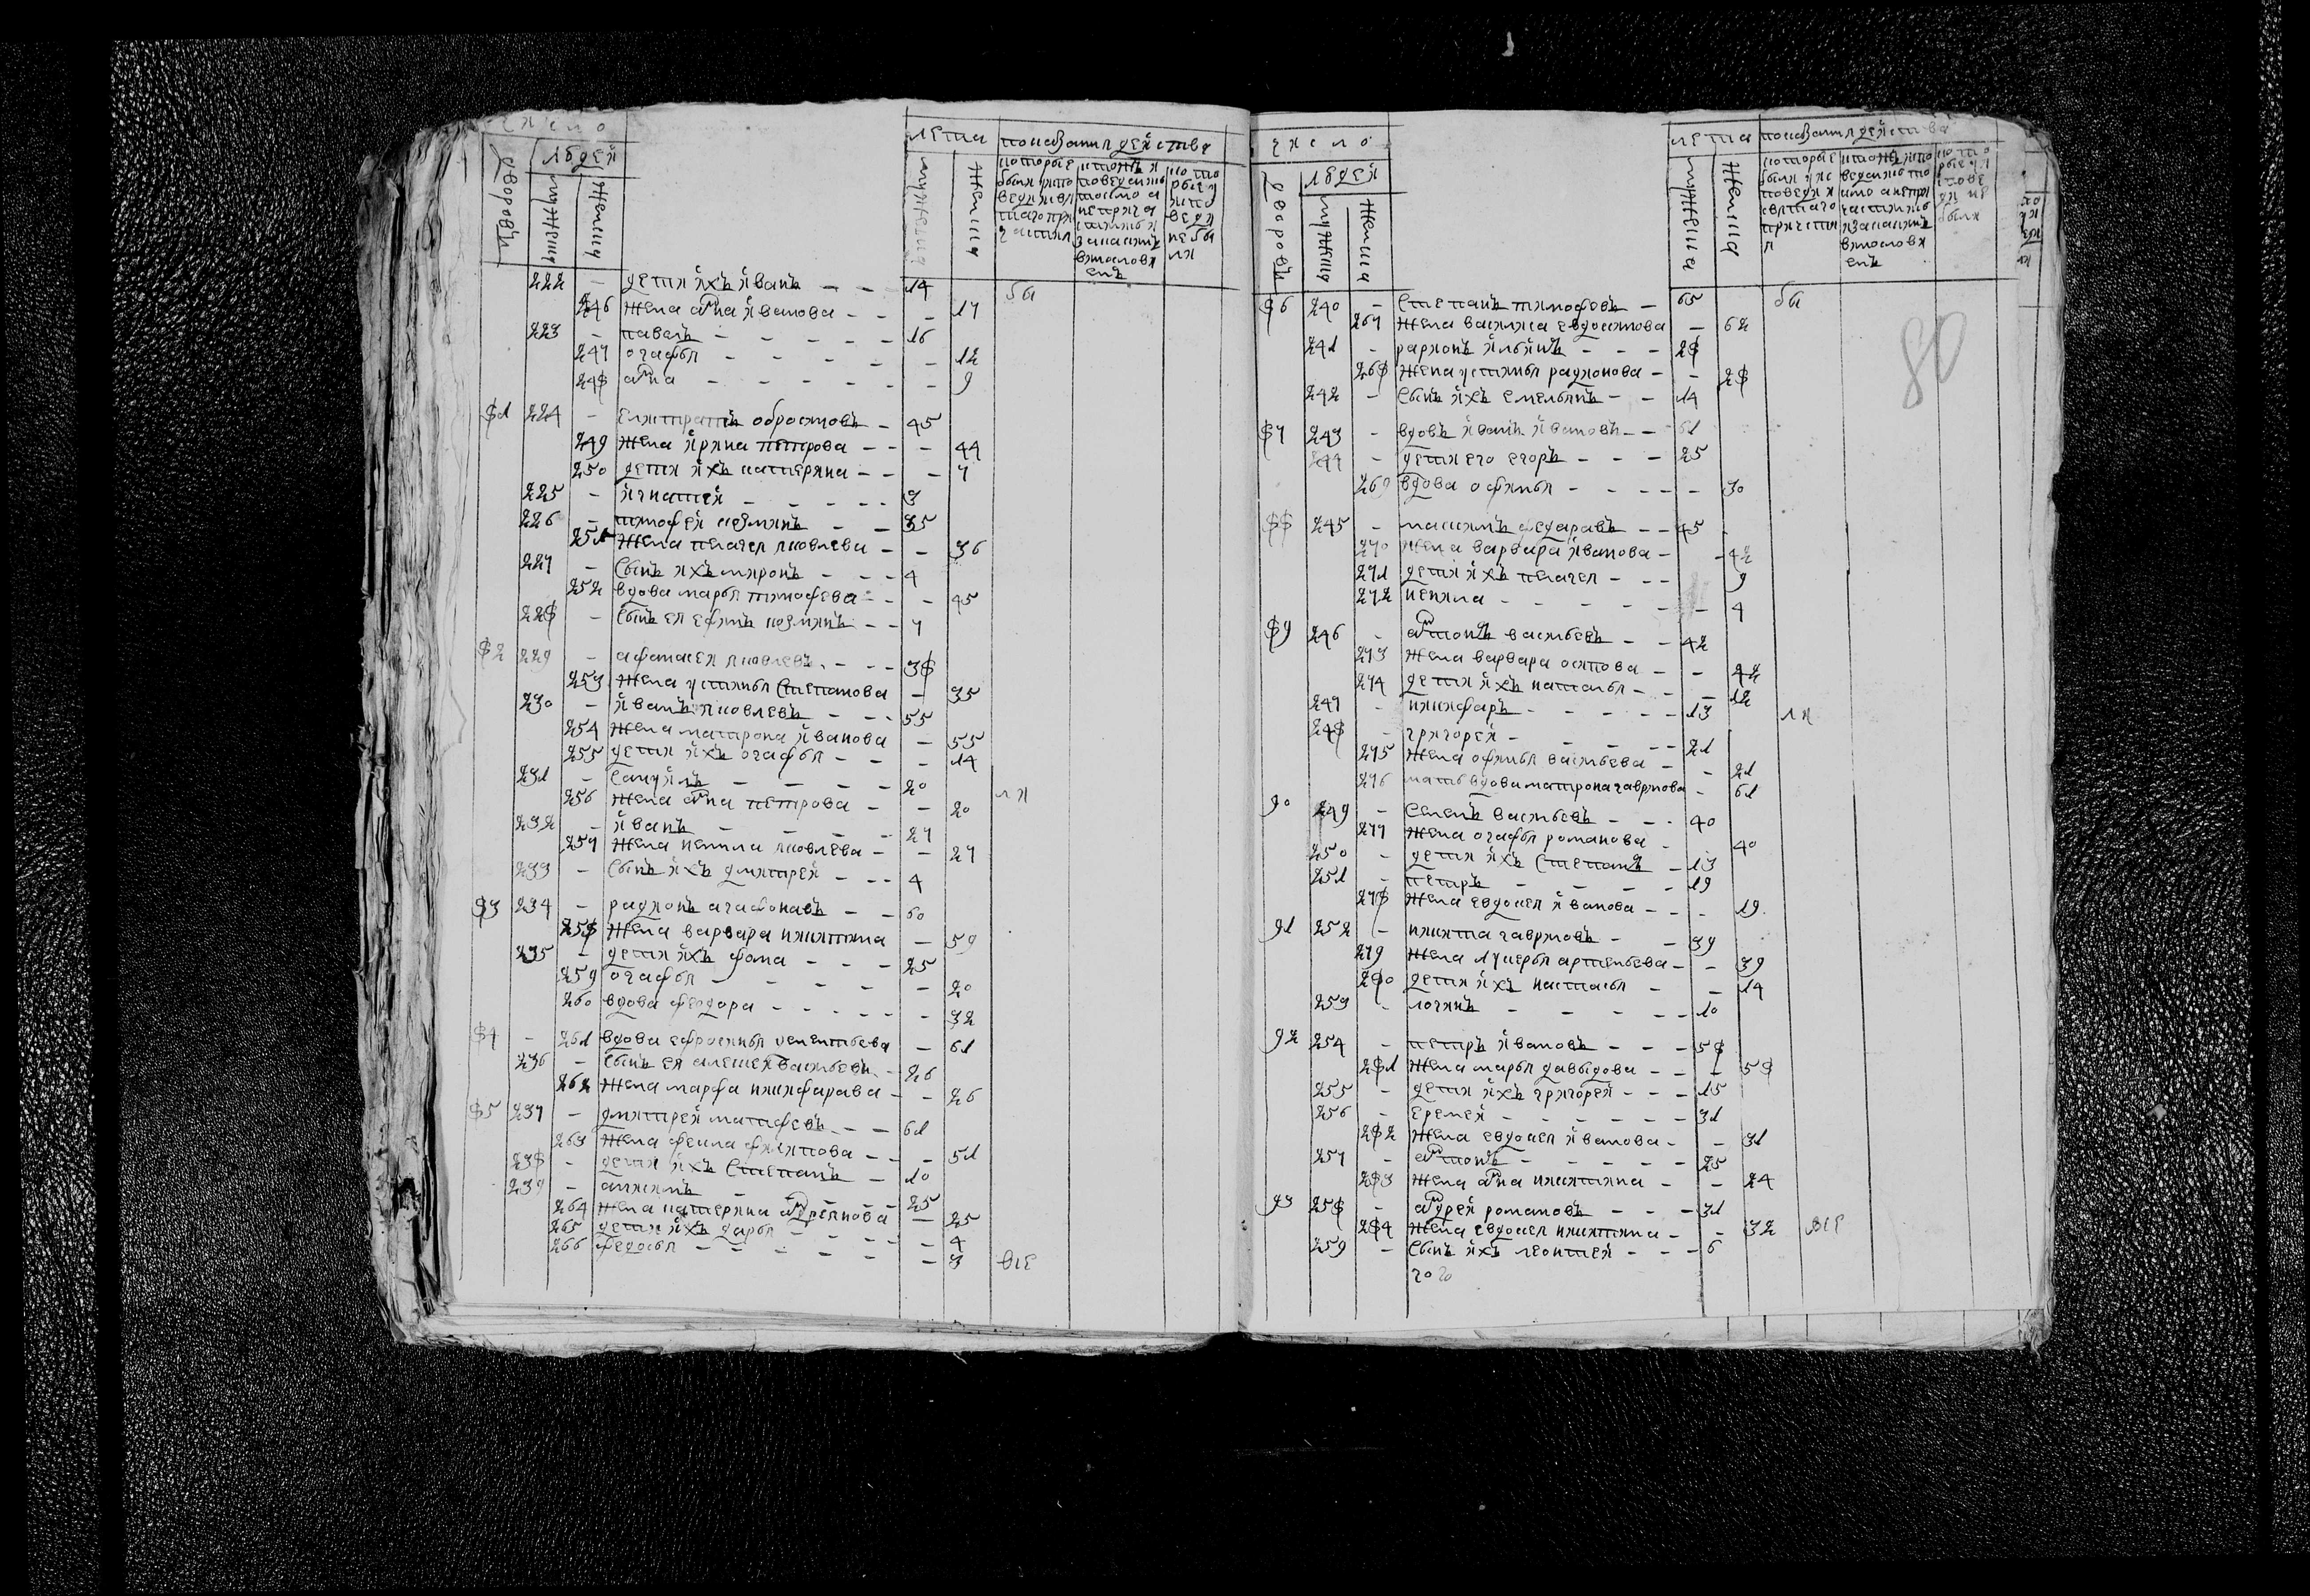 число
дворовъ
людей
мужеска
женска
лета
мужеска
женска
показания действа
которые были у исповеди и святаго причастия
которые не были
222 - дети ихъ иванъ - - 14 бы
246 жена анна иванова - - - 17
223 - павелъ - - - 16
247 огафья - - - - 12
248 анна - - - - 9
81 224 - елистратъ обросимовъ - 45
249 жена ирина петрова - - - 44
250 дети ихъ катерина - - - 7
225 - игнатей - - - 3
226 - тимофей козминъ - - 35
251 жена пелагея яковлева - - 36
227 - сынъ ихъ миронъ - - - 4
252 вдова марья тимофева - - - 45
228 - сынъ ея ефимъ козминъ - - 7
82 229 - афанасей яковлевъ - - - 38
253 жена устинья степанова - 35
230 - иванъ яковлевъ - - - 55
254 жена матрона иванова - 55
255 дети ихъ огафья - - - 14
231 - самуилъ - - - 20
256 жена анна петрова - - 20 ли
232 - иванъ - - - 27
257 жена яковлева - - 27
233 - сынъ ихъ дмитрей - - - 4
83 234 - радионъ агафоновъ - - 60
258 жена варвара никитина - 59
235 - дети ихъ фома - - - 25
259 огафья - - - - 20
260 вдова феодора - - - - 32
84 - 261 вдова ефросинья - 61
236 - сынъ ея алексей васильевъ - 26
262 жена марфа никифарава - - 26
85 237 - дмитрей матфевъ - - - 61
263 жена фекла филипова - - - 51
238 - дети ихъ степанъ - 10
239 - - - - 25
264 жена катерина андреянова - 25
265 дети ихъ дарья - - - 4
266 федосья - - - - 3 все
число
дворовъ
людей
мужеска
женска
лета
мужеска
женска
показания действа
80
86 240 - степанъ тимофевъ - 65 бы
267 жена василиса евдокимова - 62
241 - радионъ ильинъ - - - 28
268 жена устинья радионова - - 28
242 - сынъ ихъ емельянъ - - 14
87 243 - вдовъ иванъ ивановъ - - 61
244 - дети его егоръ - - - 25
269 вдова офимья - - - - 30
88 245 - максимъ федаравъ - - 45
270 жена варвара иванова - - 42
271 дети ихъ пелагея - - - 9
272 ненила - - - - 4
89 246 - антонъ васильевъ - - 42
273 жена варвара осипова - - 42
274 дети ихъ наталья - - - 12
247 - никифаръ - - - 13 ли
248 - григорей - - - 21
275 жена офимья васильева - - 21
276 мать вдова матрона гаврилова - 61
90 249 - семенъ васильевъ - - - 40
277 жена огафья романова - 40
250 - дети ихъ степанъ - 13
251 - петръ - - - 19
278 жена евдокея иванова - - - 19
91 252 - никита гавриловъ - - 39
279 жена лукерья артемьева - - 39
280 дети ихъ настасья - - 14
253 - логинъ - - - 10
92 254 - петръ ивановъ - - - 58
281 жена марья давыдова - - - 58
255 - дети ихъ григорей - - - 15
256 - еремей - - - 31
282 жена евдокея иванова - - 31
257 - антонъ - - - 25
283 жена анна никитина - - 24
93 258 - андрей романовъ - - - 31
284 жена евдокея никитина - - 32 все
259 - сынъ ихъ леонтей - - - 6